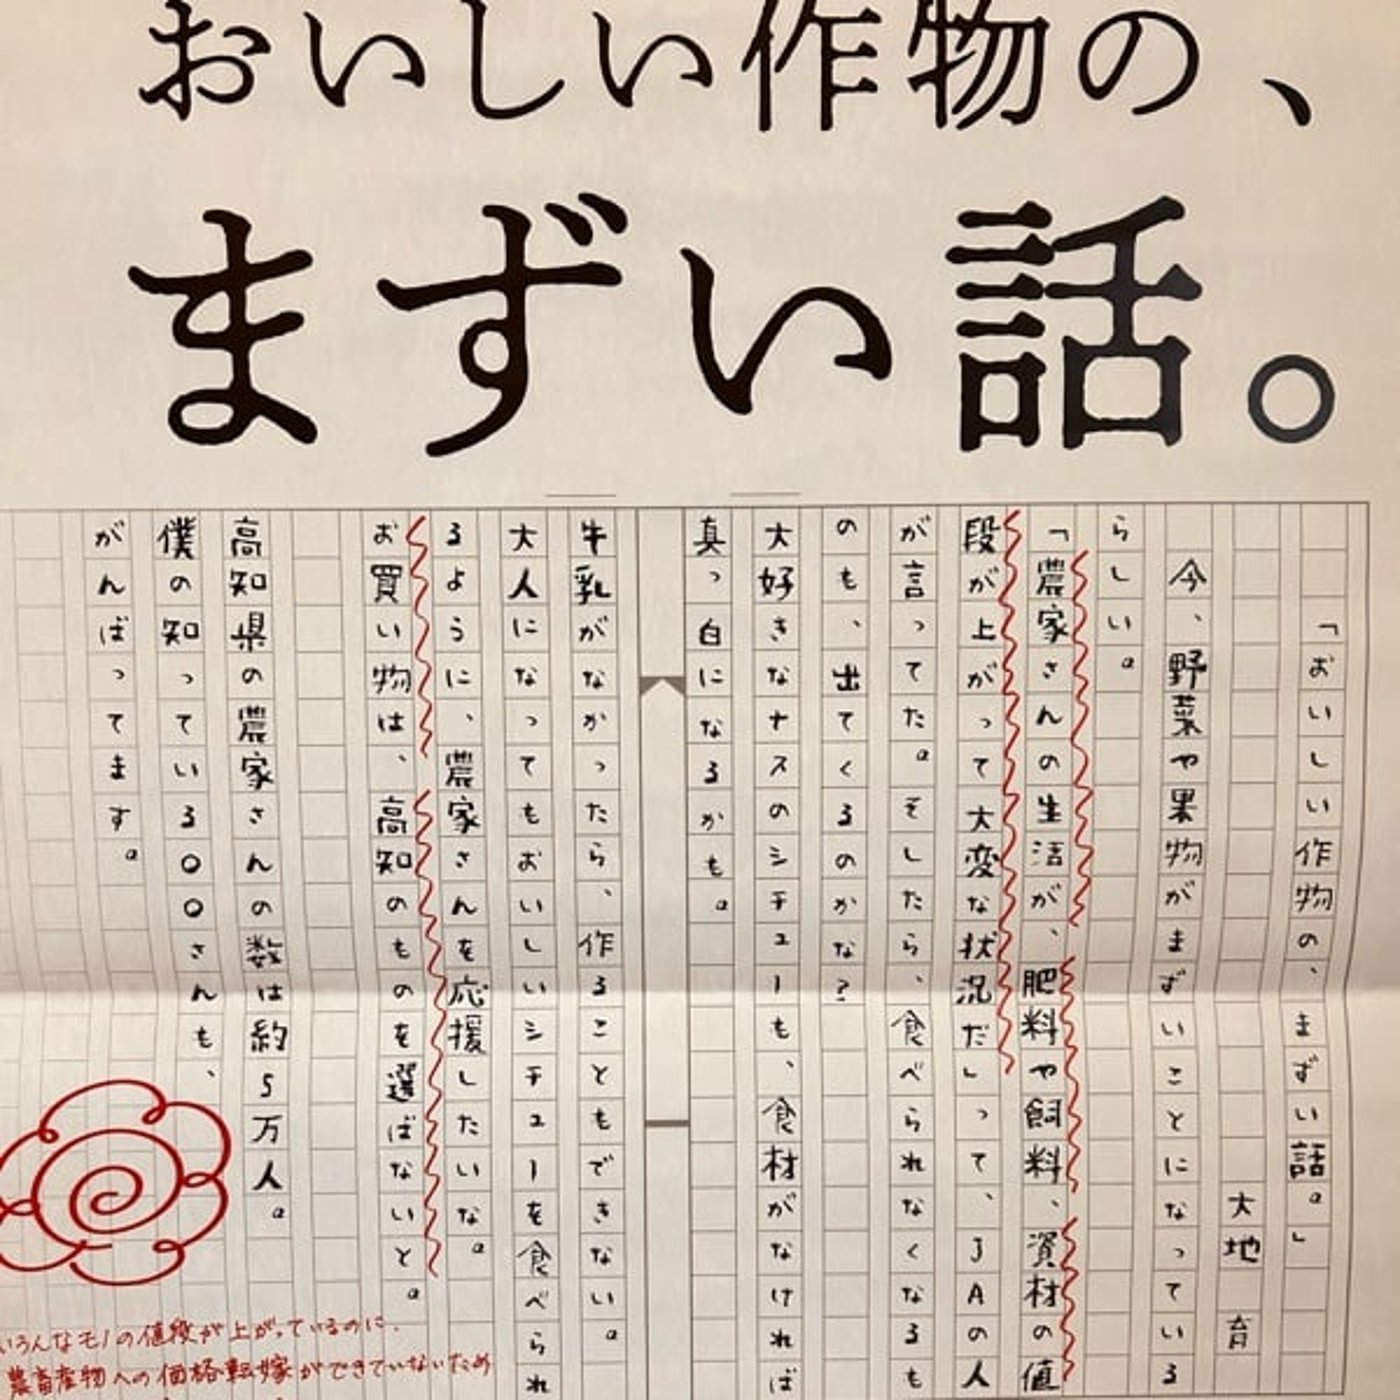 おいしい作物の、
まずい話。
「おいしい作物の、まずい話。」
大地 育
今、野菜や果物がまずいことになっている
らしい。
「農家さんの生活が、肥料や飼料、資材の値
段が上がって大変な状況だ」って、JAの人
が言ってた。そしたら、食べられなくなるも
のも、出てくるのかな?
大好きなナスのシチューも、食材がなければ
真っ白になるかも。
牛乳がなかったら、作ることもできない。
大人になってもおいしいシチューを食べられ
るように、農家さんを応援したいな。
お買い物は、高知のものを選ばないと。
高知県の農家さんの数は約5万人。
僕の知っている〇〇さんも、
がんばってます。
いろんなモノの値段が上がっているのに、
農畜産物への価格転嫁ができていないため